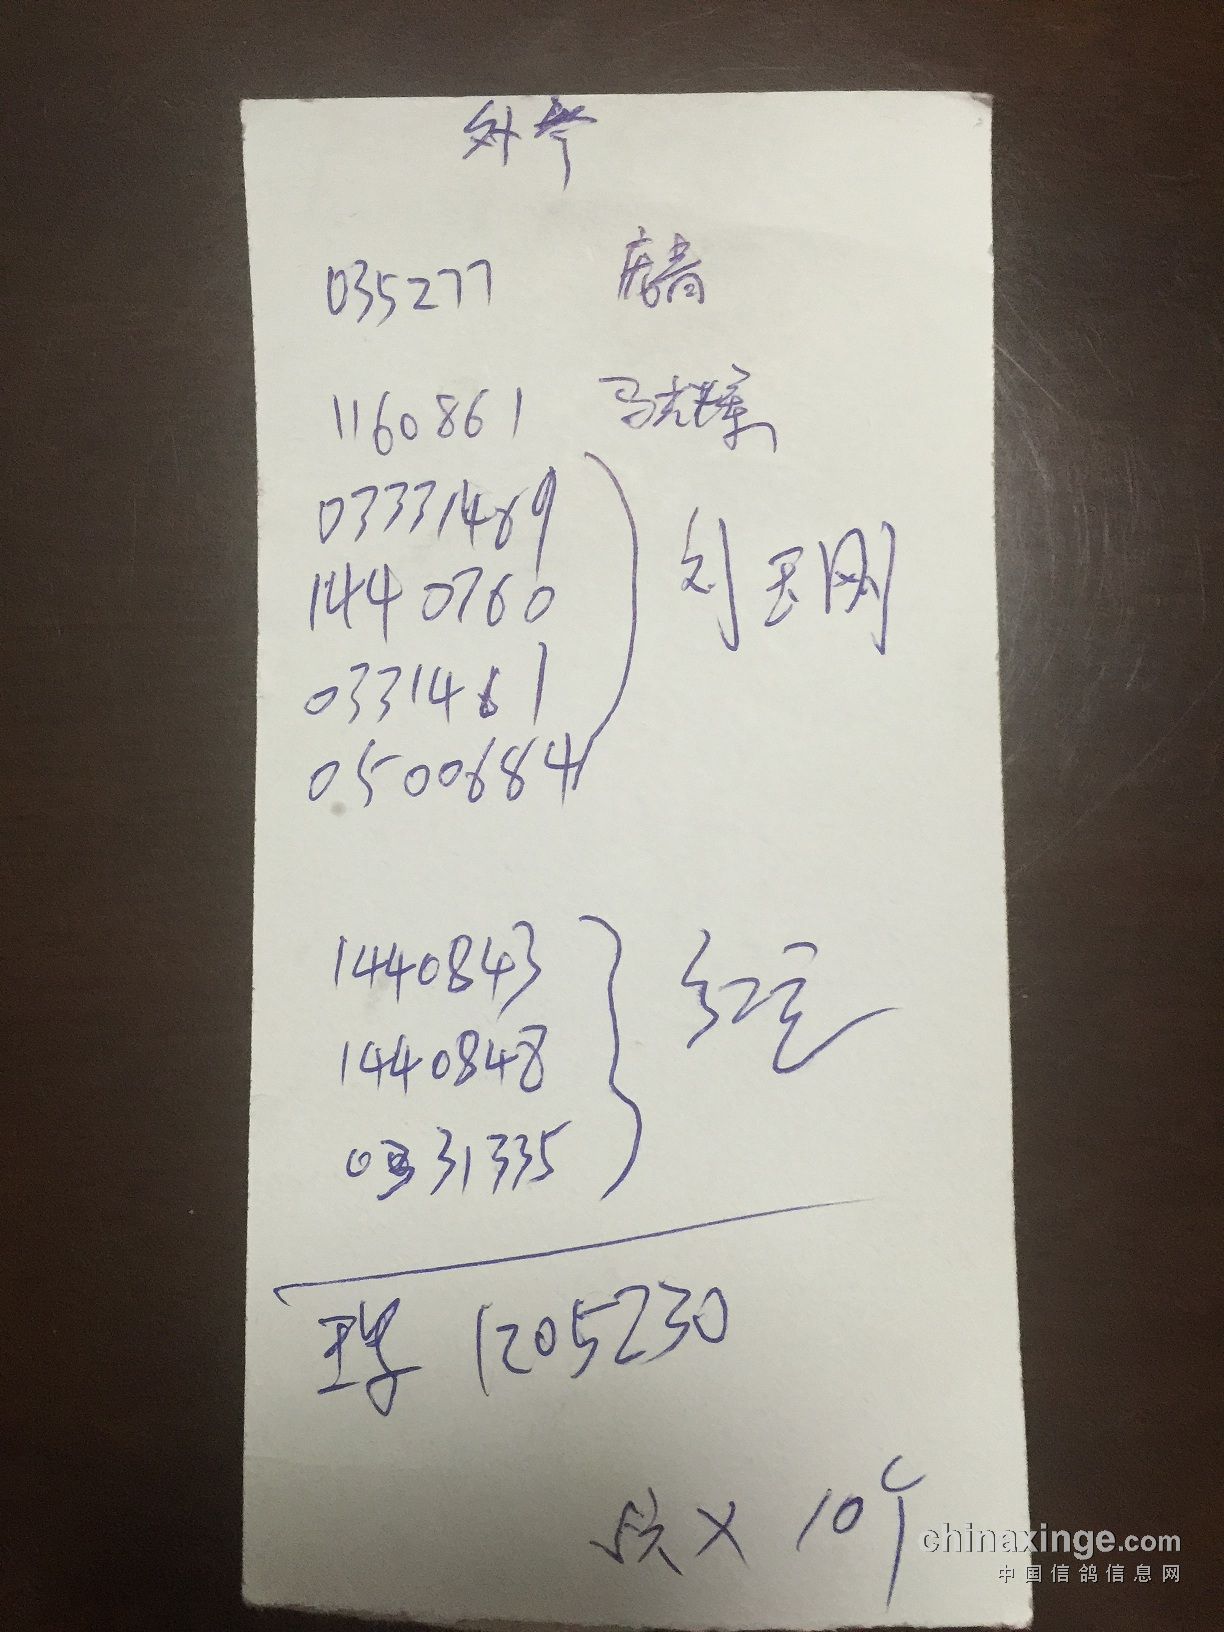 外
035277
1160861 马光辉
03331489
1440760
刘玉刚
0331481
0500684
1440843
红宝
1440848
0331335
1205230
X 10个
chinaxinge.com
中国信鸽信息网